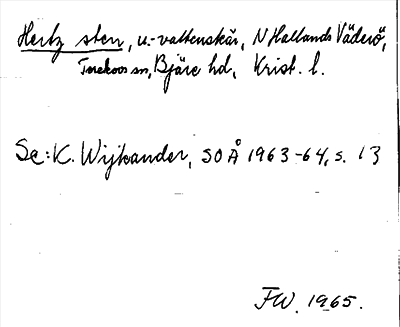 Hertz sten, u.-vattenskär, N Hallands Väderö,
Torekovs sn, Bjäre hd, Krist. l.
Se: K. Wijkander, SOÅ 1963-64, s. 13
FW. 1965.